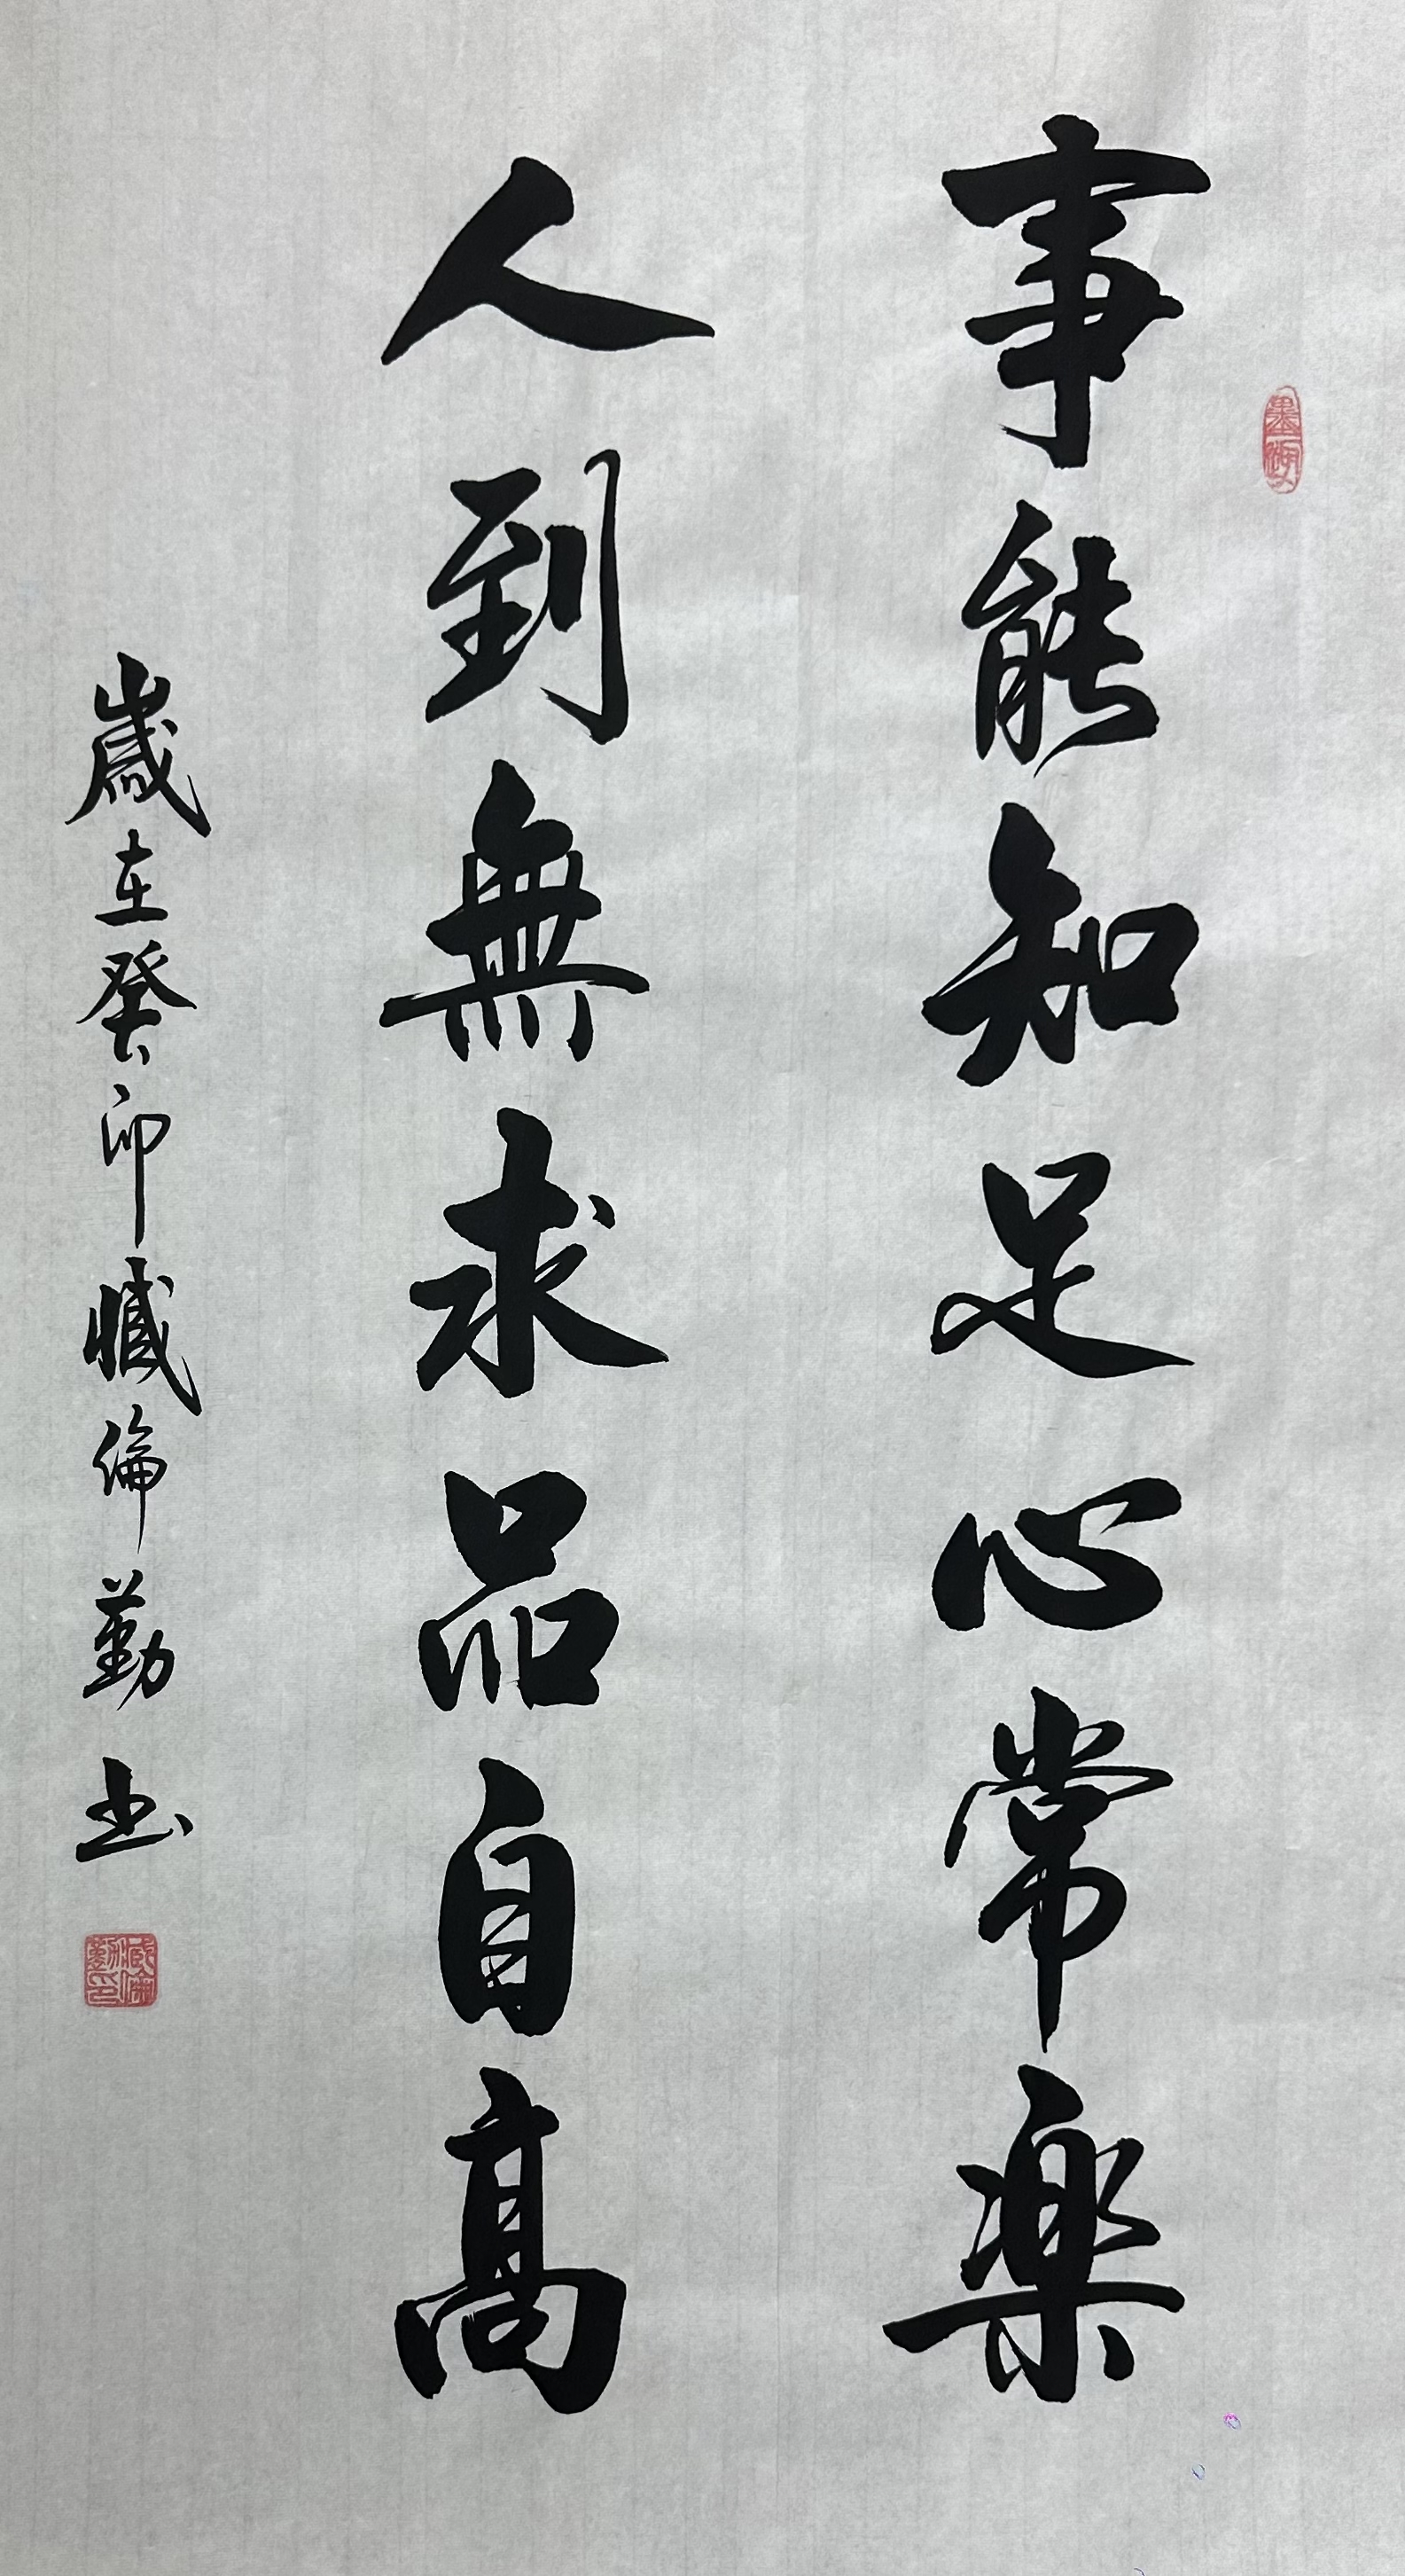 事能知足心常楽
人到無求品自高
歲在癸卯臧倫勤书